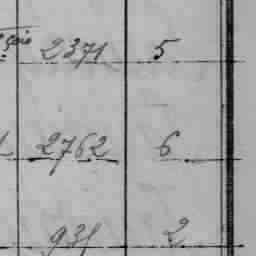 2371 5
2762 6
931 2